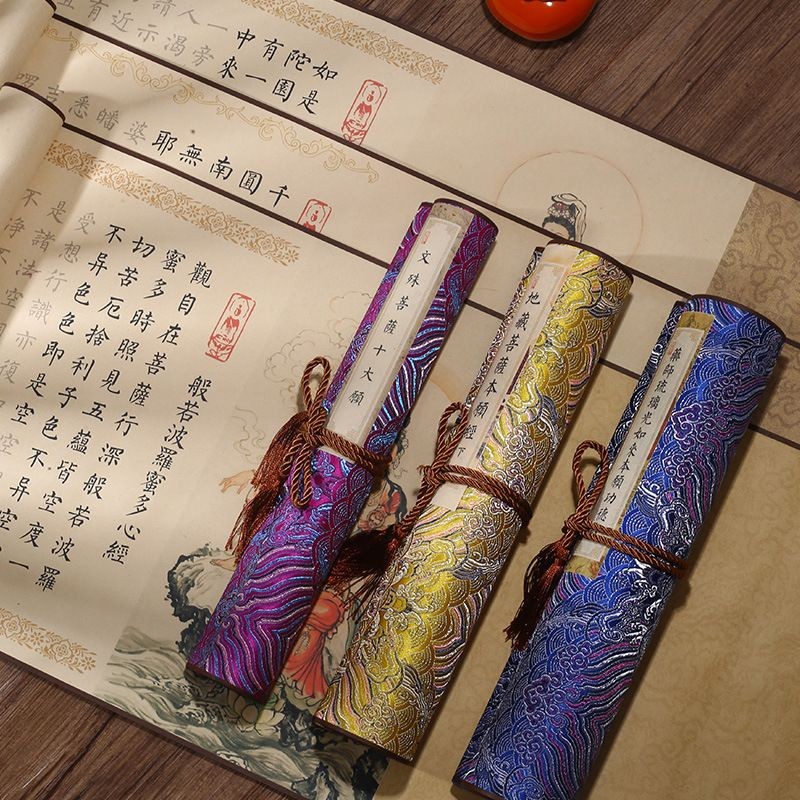 如是
陀園
有一
中來
一旁
人渴
請示
近
有
千
圓
南
無
耶
婆
皤
悉
吉
般若波羅蜜多心經
觀自在菩薩行深般若波羅
蜜多時照見五蘊皆空度一
切苦厄捨利子色不異空
不異色色即是空
受想行識亦復
是諸法空
不淨不
文殊菩薩十大願
地藏菩薩本願經下
藥師琉璃光如來本願功德